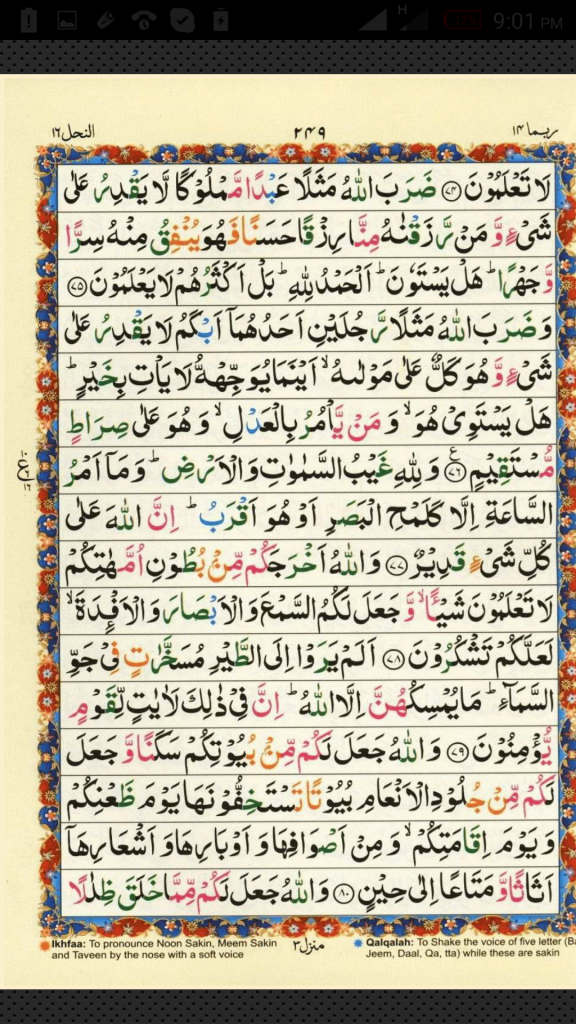 H
12%
9:01 PM
النحل ١٦
٢٤٩
ربما ١٤
لَا تَعْلَمُوْنَ ﴿۷۴﴾ ضَرَبَ اللّٰهُ مَثَلًا عَبْدًا مَّمْلُوْكًا لَّا يَقْدِرُ عَلٰى
شَىْءٍ وَّ مَنْ رَّزَقْنٰهُ مِنَّا رِزْقًا حَسَنًا فَهُوَ يُنْفِقُ مِنْهُ سِرًّا
وَّ جَهْرًا ؕ هَلْ يَسْتَوٗنَ ؕ اَلْحَمْدُ لِلّٰهِ ؕ بَلْ اَكْثَرُهُمْ لَا يَعْلَمُوْنَ ﴿۷۵﴾
وَ ضَرَبَ اللّٰهُ مَثَلًا رَّجُلَيْنِ اَحَدُهُمَاۤ اَبْكَمُ لَا يَقْدِرُ عَلٰى
شَىْءٍ وَّ هُوَ كَلٌّ عَلٰى مَوْلٰىهُ ۙ اَيْنَمَا يُوَجِّهْهُّ لَا يَاْتِ بِخَيْرٍ ؕ
هَلْ يَسْتَوِىْ هُوَ ۙ وَ مَنْ يَّاْمُرُ بِالْعَدْلِ ۙ وَ هُوَ عَلٰى صِرَاطٍ
مُّسْتَقِيْمٍ ﴿۷۶﴾ وَ لِلّٰهِ غَيْبُ السَّمٰوٰتِ وَ الْاَرْضِ ؕ وَ مَاۤ اَمْرُ
السَّاعَةِ اِلَّا كَلَمْحِ الْبَصَرِ اَوْ هُوَ اَقْرَبُ ؕ اِنَّ اللّٰهَ عَلٰى
كُلِّ شَىْءٍ قَدِيْرٌ ﴿۷۷﴾ وَ اللّٰهُ اَخْرَجَكُمْ مِّنْۢ بُطُوْنِ اُمَّهٰتِكُمْ
لَا تَعْلَمُوْنَ شَيْئًا ۙ وَّ جَعَلَ لَكُمُ السَّمْعَ وَ الْاَبْصَارَ وَ الْاَفْـِٕدَةَ ۙ
لَعَلَّكُمْ تَشْكُرُوْنَ ﴿۷۸﴾ اَلَمْ يَرَوْا اِلَى الطَّيْرِ مُسَخَّرٰتٍ فِىْ جَوِّ
السَّمَآءِ ؕ مَا يُمْسِكُهُنَّ اِلَّا اللّٰهُ ؕ اِنَّ فِىْ ذٰلِكَ لَاٰيٰتٍ لِّقَوْمٍ
يُّؤْمِنُوْنَ ﴿۷۹﴾ وَ اللّٰهُ جَعَلَ لَكُمْ مِّنْۢ بُيُوْتِكُمْ سَكَنًا وَّ جَعَلَ
لَكُمْ مِّنْ جُلُوْدِ الْاَنْعَامِ بُيُوْتًا تَسْتَخِفُّوْنَهَا يَوْمَ ظَعْنِكُمْ
وَ يَوْمَ اِقَامَتِكُمْ ۙ وَ مِنْ اَصْوَافِهَا وَ اَوْبَارِهَا وَ اَشْعَارِهَاۤ
اَثَاثًا وَّ مَتَاعًا اِلٰى حِيْنٍ ﴿۸۰﴾ وَ اللّٰهُ جَعَلَ لَكُمْ مِّمَّا خَلَقَ ظِلٰلًا
Ikhfaa: To pronounce Noon Sakin, Meem Sakin
and Taveen by the nose with a soft voice
منزل ٣
Qalqalah: To Shake the voice of five letter (Ba
Jeem, Daal, Qa, tta) while these are sakin